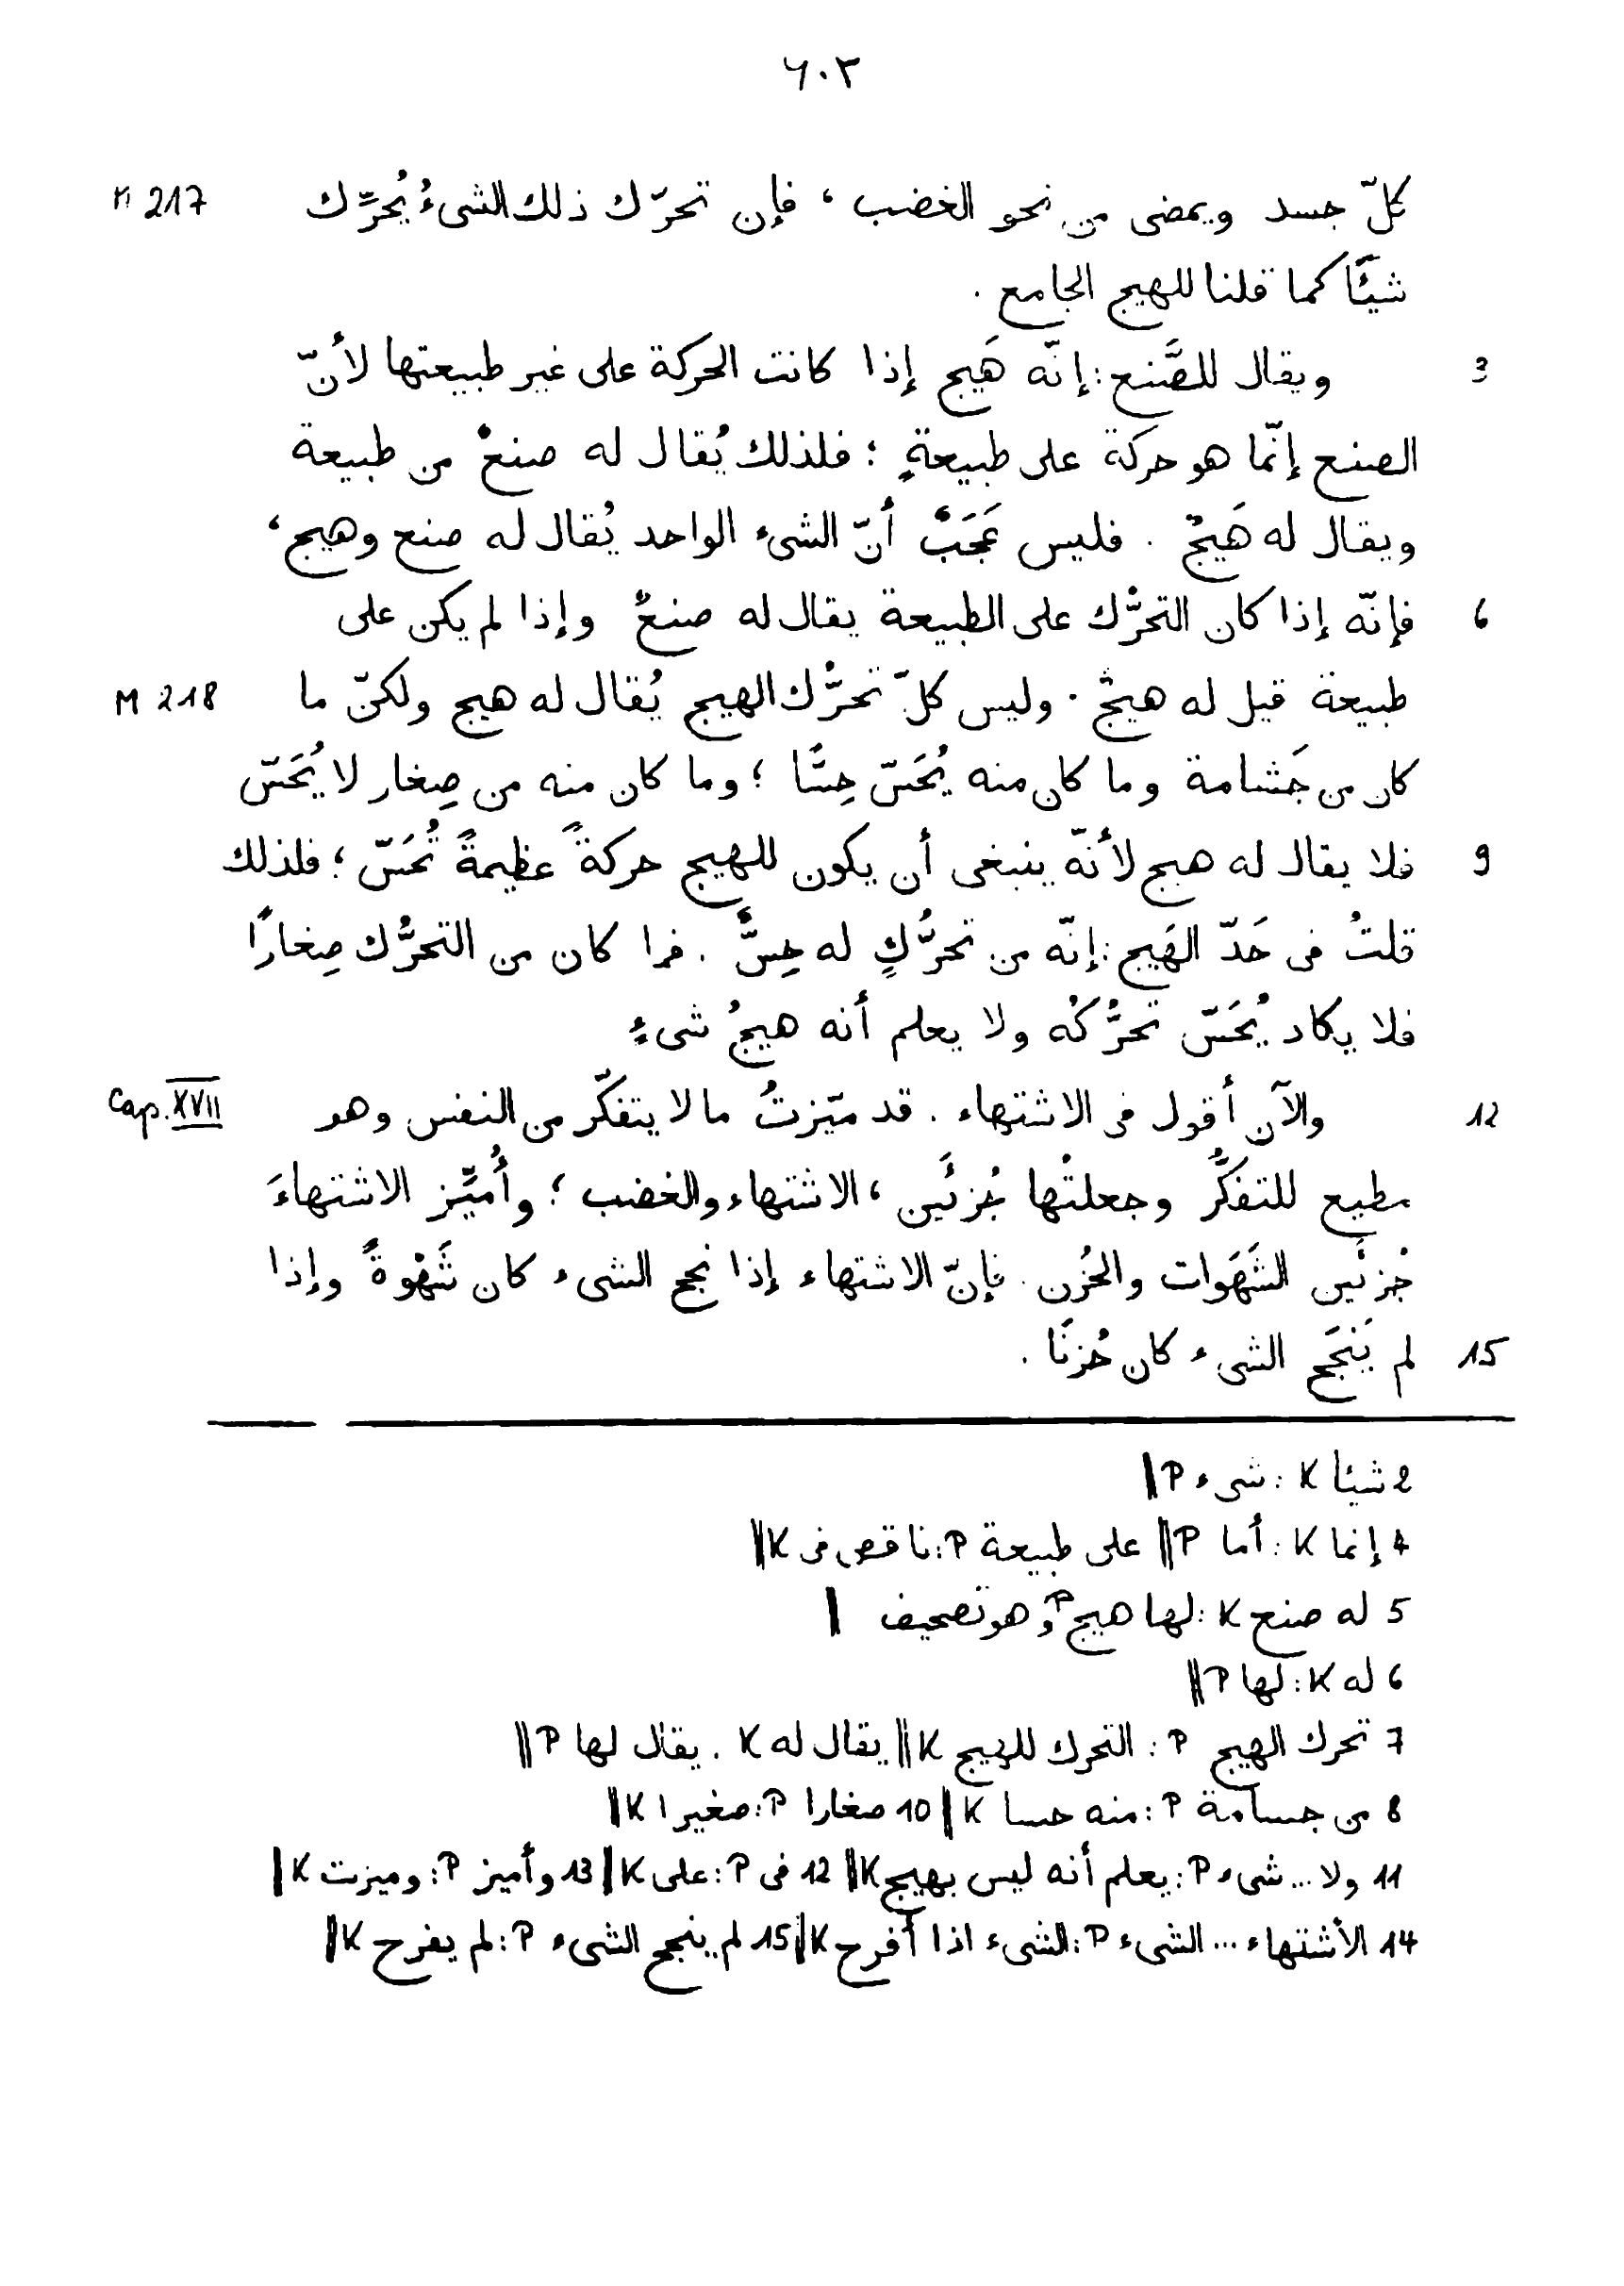 ٦٠٣
كلّ جسد ويمضى من نحو الغضب ، فإن تحرّك ذلك الشىءُ يُحرِّك M 217
شيئًا كما قلنا للهيج الجامع .
3 ويقال للصَّنع : إنّه هَيج إذا كانت الحركة على غير طبيعتها لأنّ
الصنع إنّما هو حركة على طبيعةٍ ؛ فلذلك يُقال له صنعٌ من طبيعة
ويقال له هَيجٌ . فليس عَجَبٌ أنّ الشىء الواحد يُقال له صنع وهيج ،
6 فإنّه إذا كان التحرُّك على الطبيعة يقال له صنعٌ وإذا لم يكن على
طبيعة قيل له هيجٌ . وليس كلّ تحرُّك الهيج يُقال له هيج ولكنّ ما M 218
كان من جَشامة وما كان منه يُحَسّ حِسًّا ؛ وما كان منه من صِغار لا يُحَسّ
9 فلا يقال له هيج لأنّه ينبغى أن يكون للهيج حركةً عظيمةً تُحَسّ ؛ فلذلك
قلتُ فى حَدّ الهَيج : إنّه من تحرُّكٍ له حِسٌّ . فما كان من التحرُّك صِغارًا
فلا يكاد يُحَسّ تحرُّكُه ولا يعلم أنه هيجُ شىءٍ
12 والآن أقول فى الاشتهاء . قد ميّزتُ ما لا يتفكّر من النفس وهو Cap. XVII
مطيع للتفكُّر وجعلتُها جُزئَين ، الاشتهاء والغضب ؛ وأُميِّز الاشتهاءَ
جُزئَين الشَهَوات والحُزن . فإنّ الاشتهاء إذا نجح الشىء كان شَهْوةً وإذا
15 لم يَنجَح الشىء كان حُزنًا .
2 شيئا K : شىء P ||
4 إنما K : أما P || على طبيعة P : ناقص فى K ||
5 له صنع K : لها هيج P وهو تصحيف |
6 له K : لها P ||
7 تحرك الهيج P : التحرك للهيج K || يقال له K . يقال لها P ||
8 من جسامة P : منه حسا K || 10 صغارا P : صغيرا K ||
11 ولا ... شىء P : يعلم أنه ليس بهيج K || 12 فى P : على K || 13 وأميز P : وميزت K |
14 الأشتهاء ... الشىء P : الشىء اذا أفرح K || 15 لم ينجح الشىء P : لم يفرح K ||